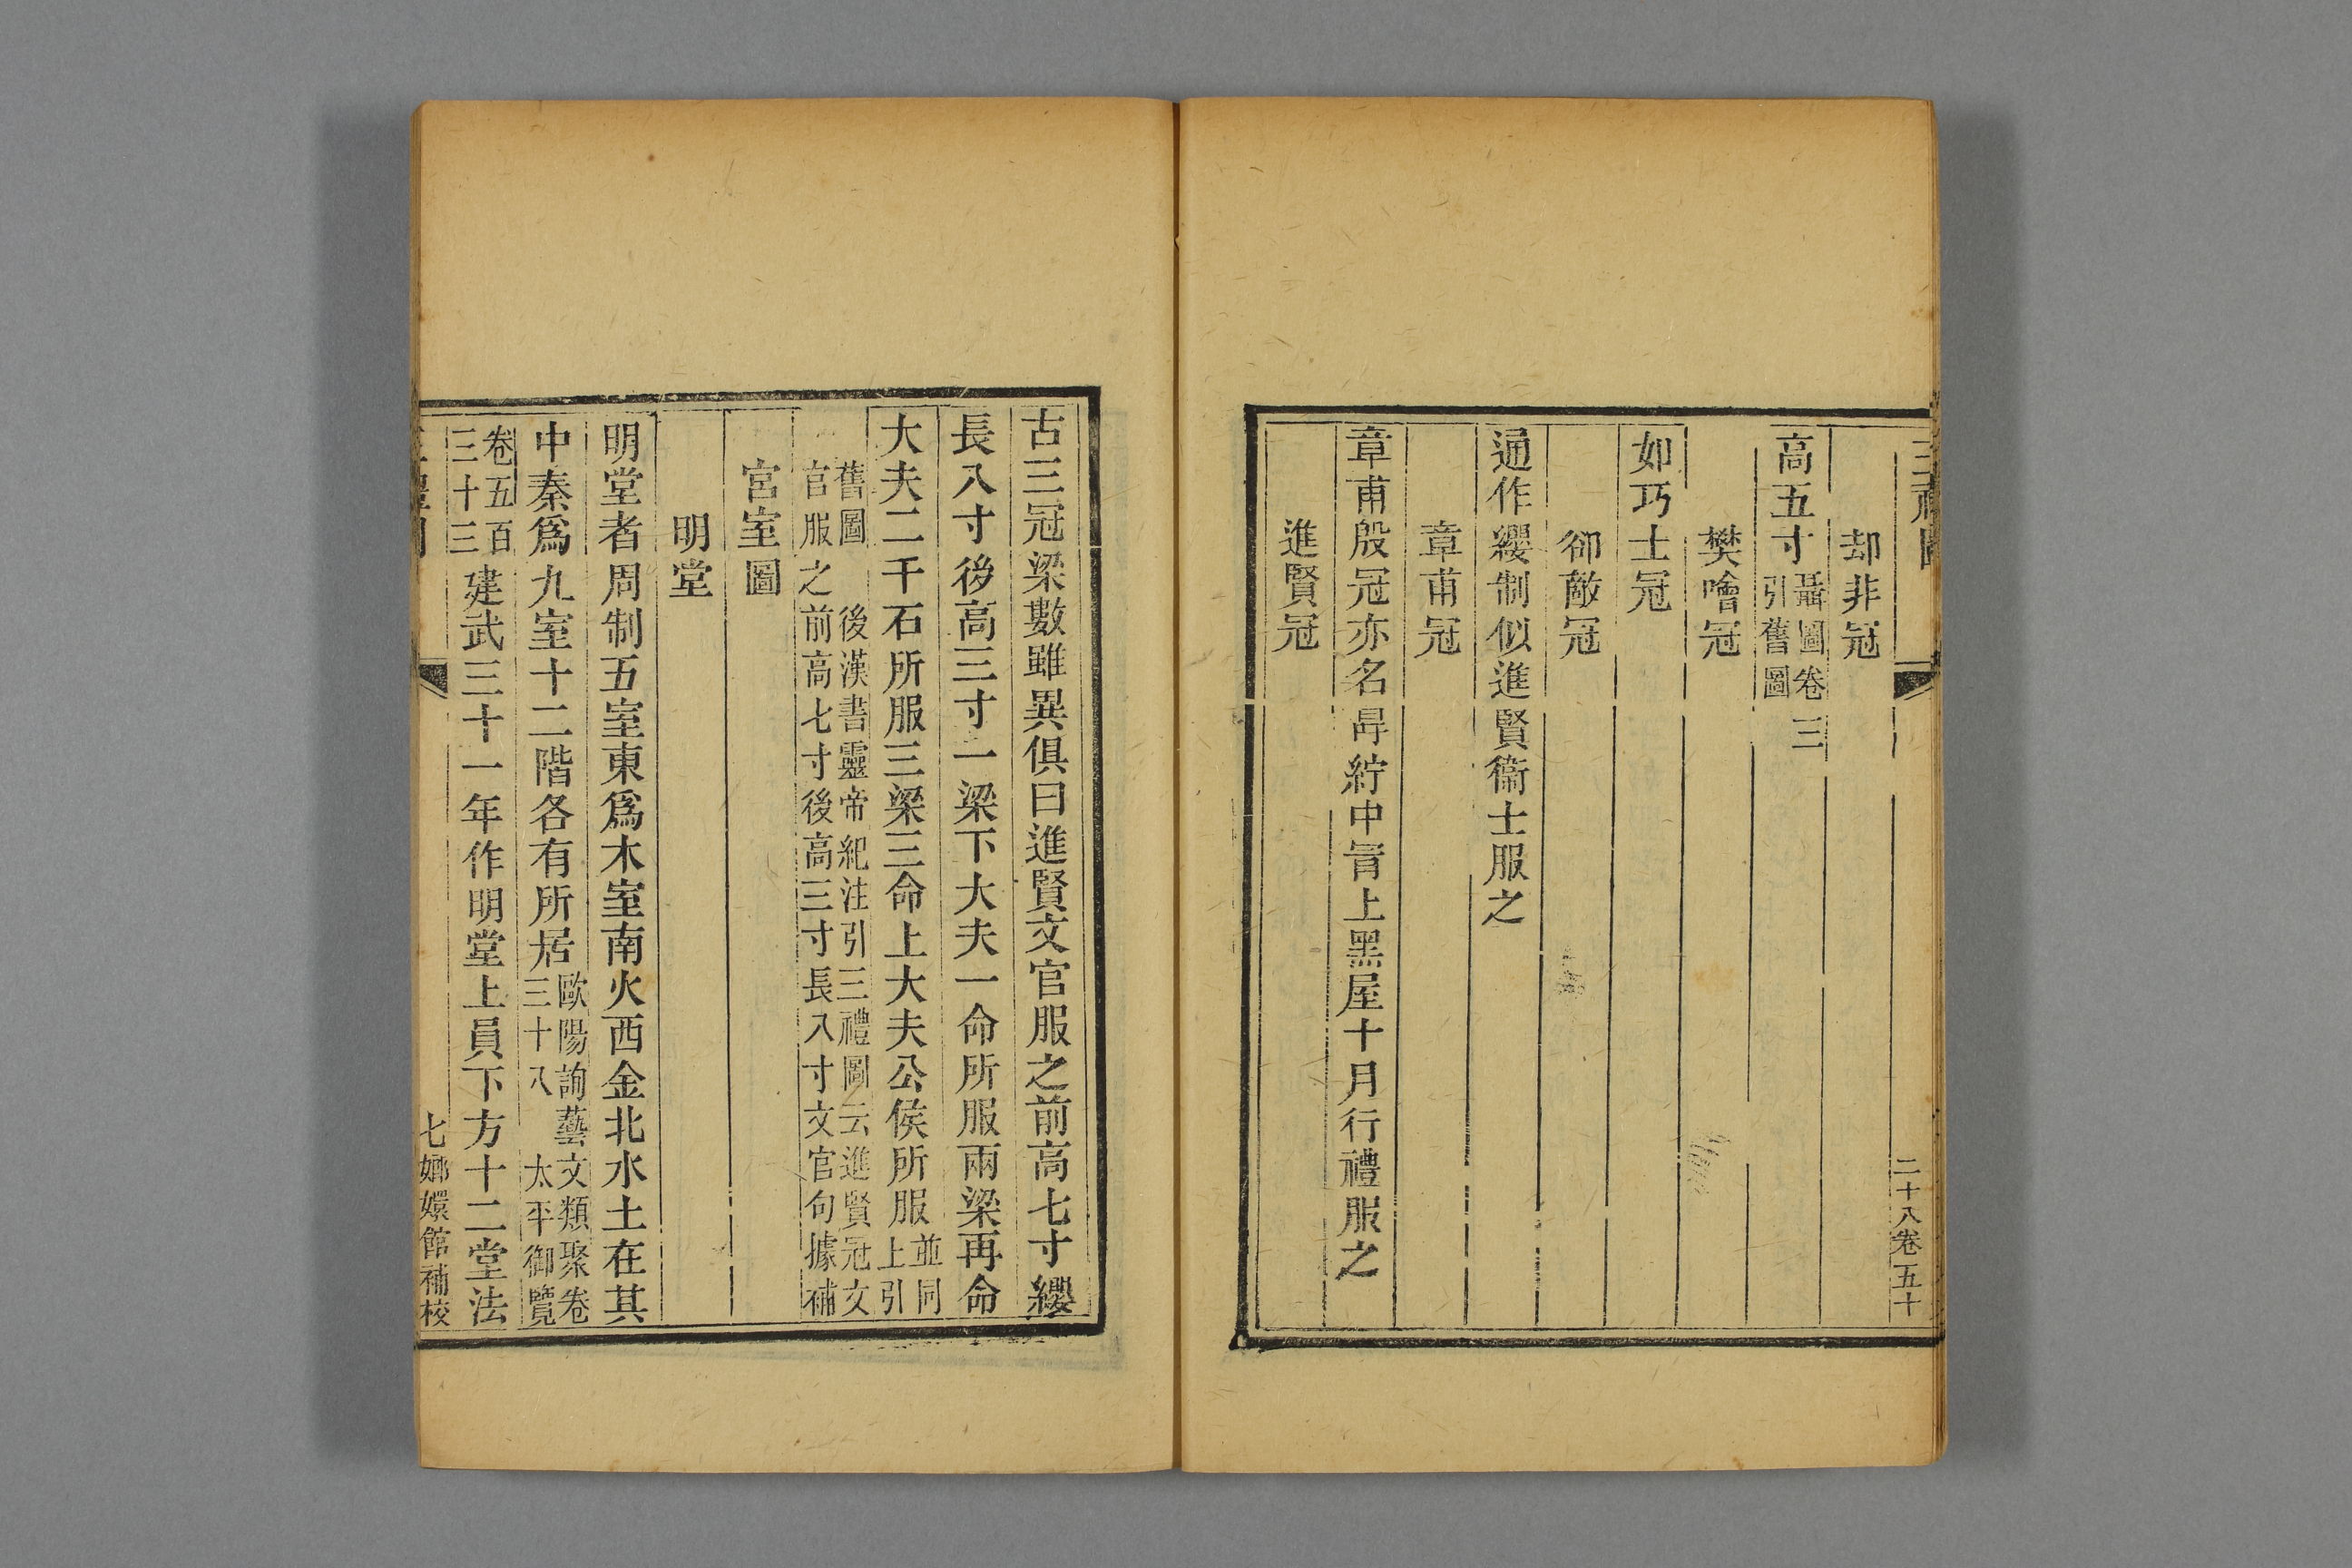 三禮圖
二十八卷五十
却非冠
高五寸聶圖卷三引舊圖
樊噲冠
如巧士冠
卻敵冠
通作纓制似進賢衞士服之
章甫冠
章甫殷冠亦名冔紵中冐上黑屋十月行禮服之
進賢冠
古三冠梁數雖異俱曰進賢文官服之前高七寸纓
長八寸後高三寸一梁下大夫一命所服兩梁再命
大夫二千石所服三梁三命上大夫公侯所服並同上引
舊圖 後漢書靈帝紀注引三禮圖云進賢冠文
官服之前高七寸後高三寸長八寸文官句據補
宮室圖
明堂
明堂者周制五室東爲木室南火西金北水土在其
中秦爲九室十二階各有所居歐陽詢藝文類聚卷三十八 太平御覽
卷五百三十三建武三十一年作明堂上員下方十二堂法
七嫏嬛館補校